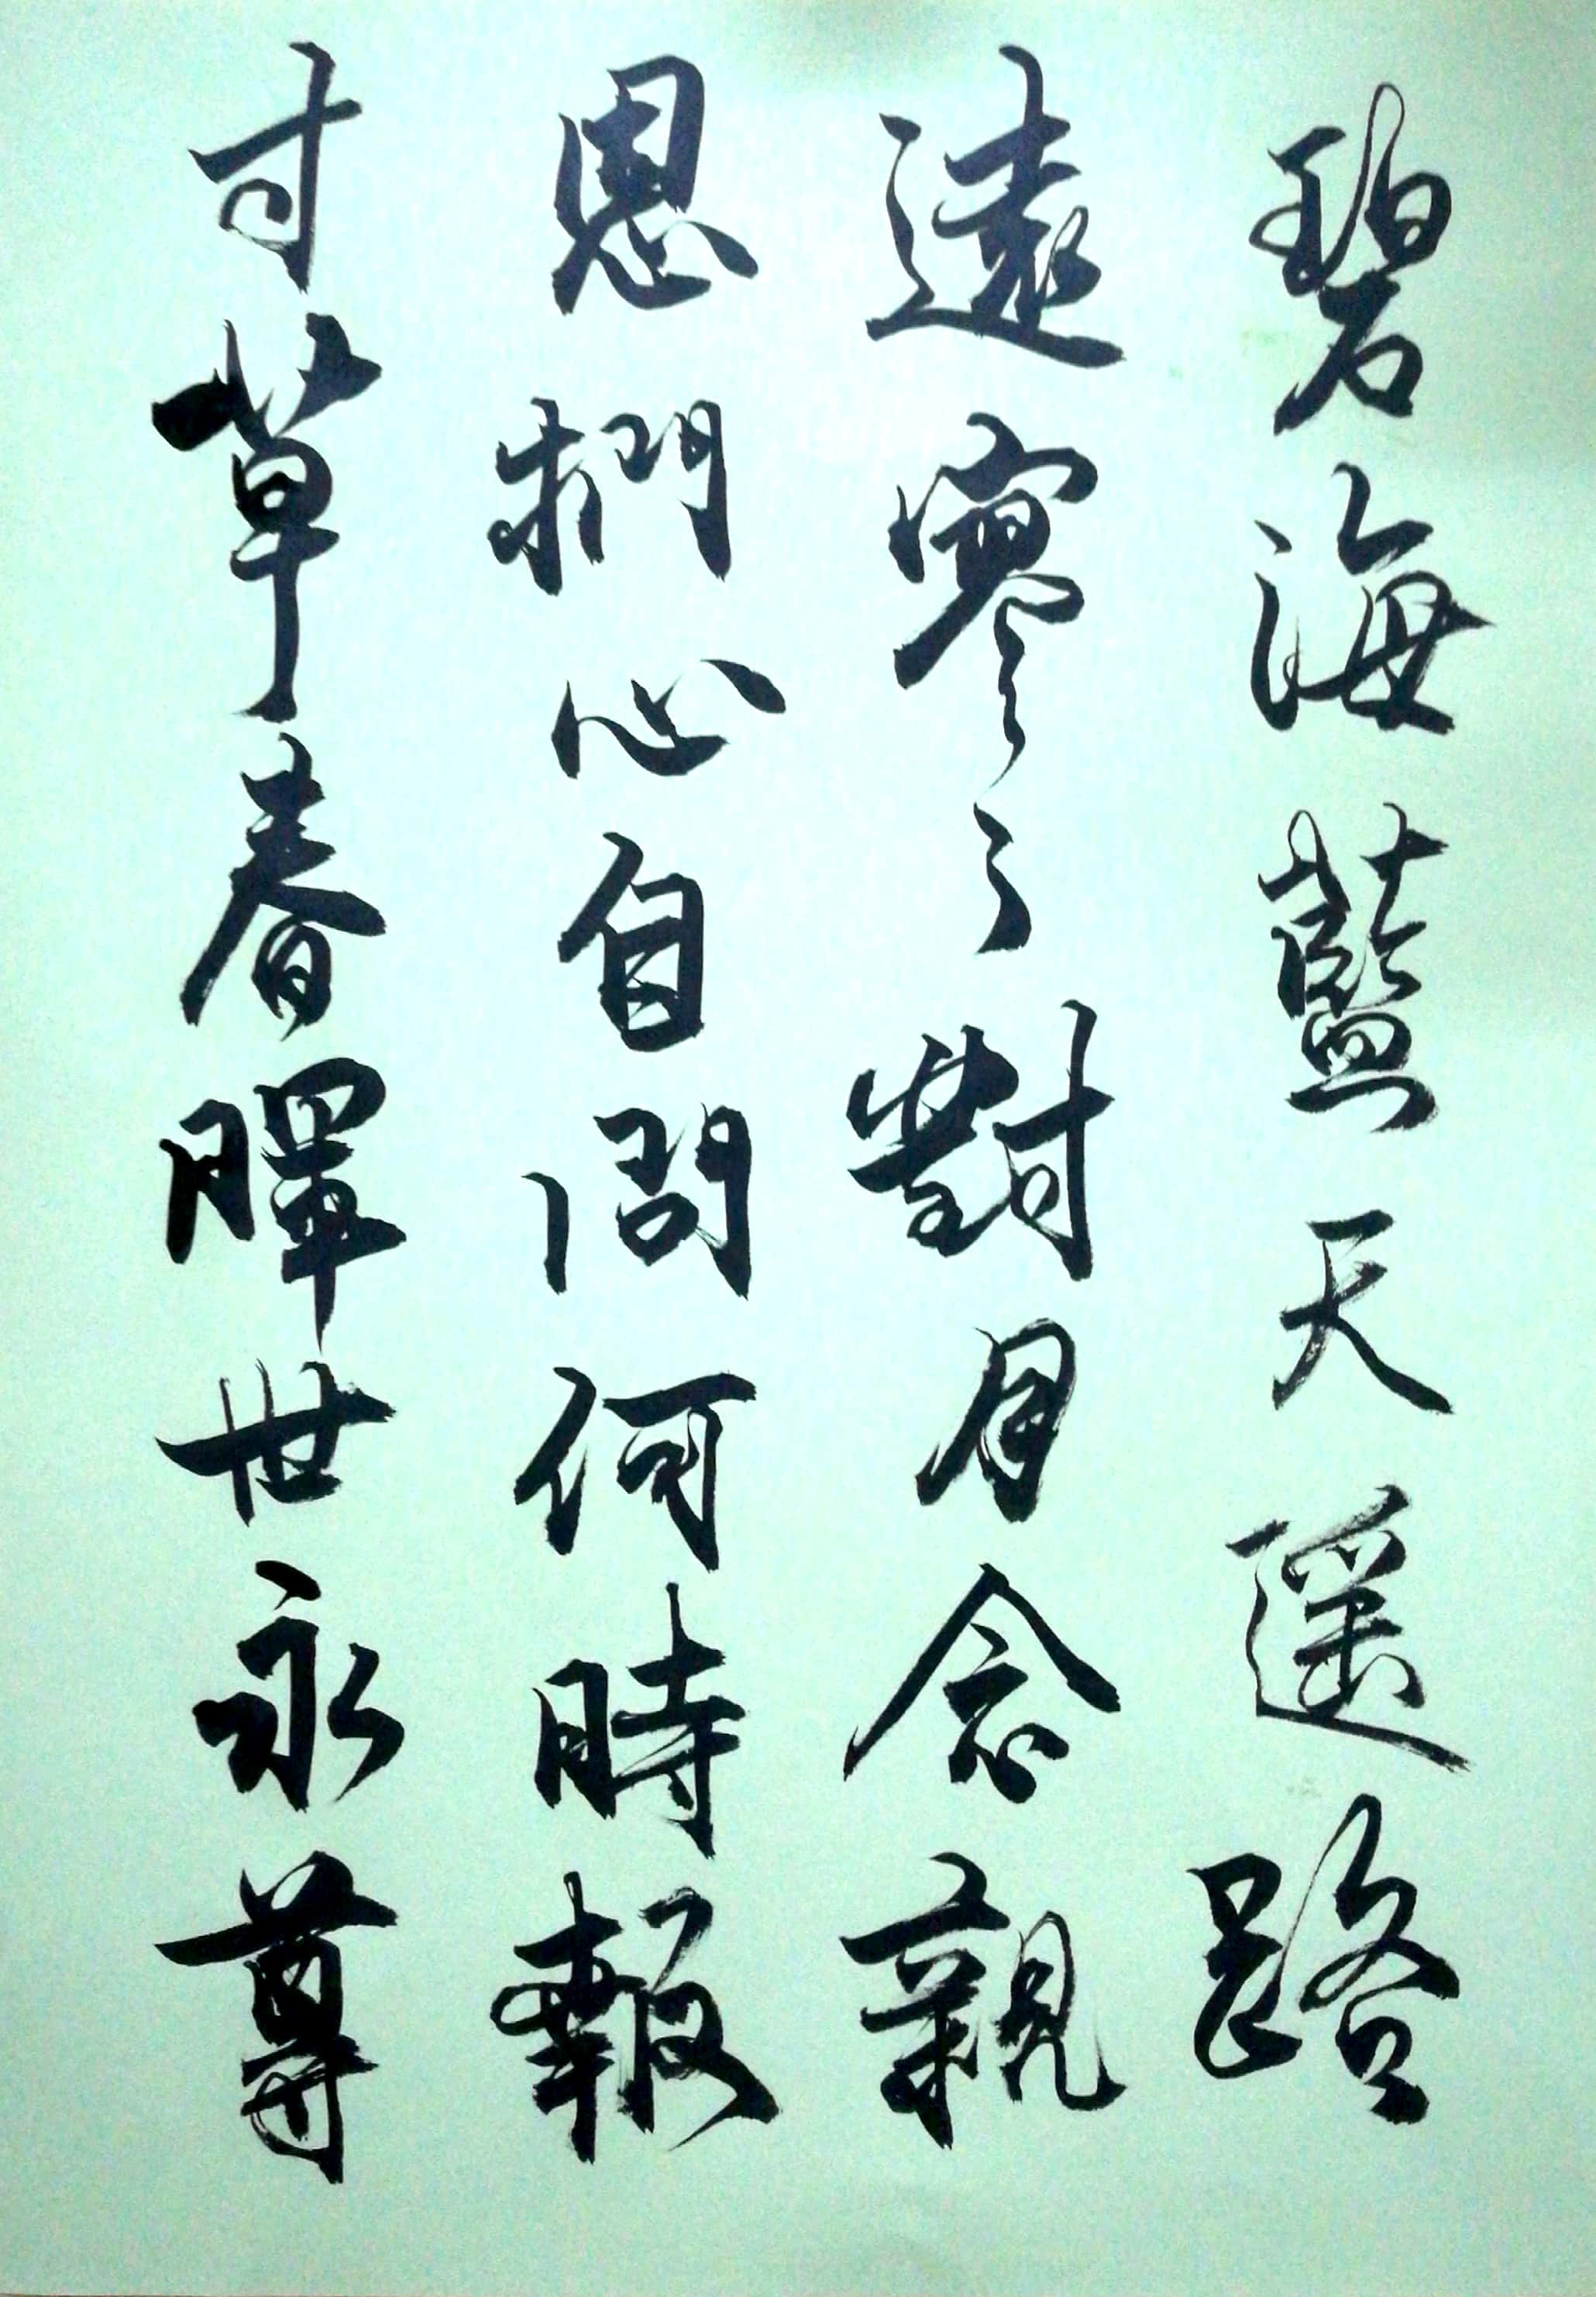 碧海藍天遥路
遠寥々對月念親
恩捫心自問何時報
寸草春暉世永尊